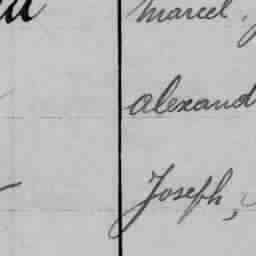 Marcel,
Alexand
Joseph,